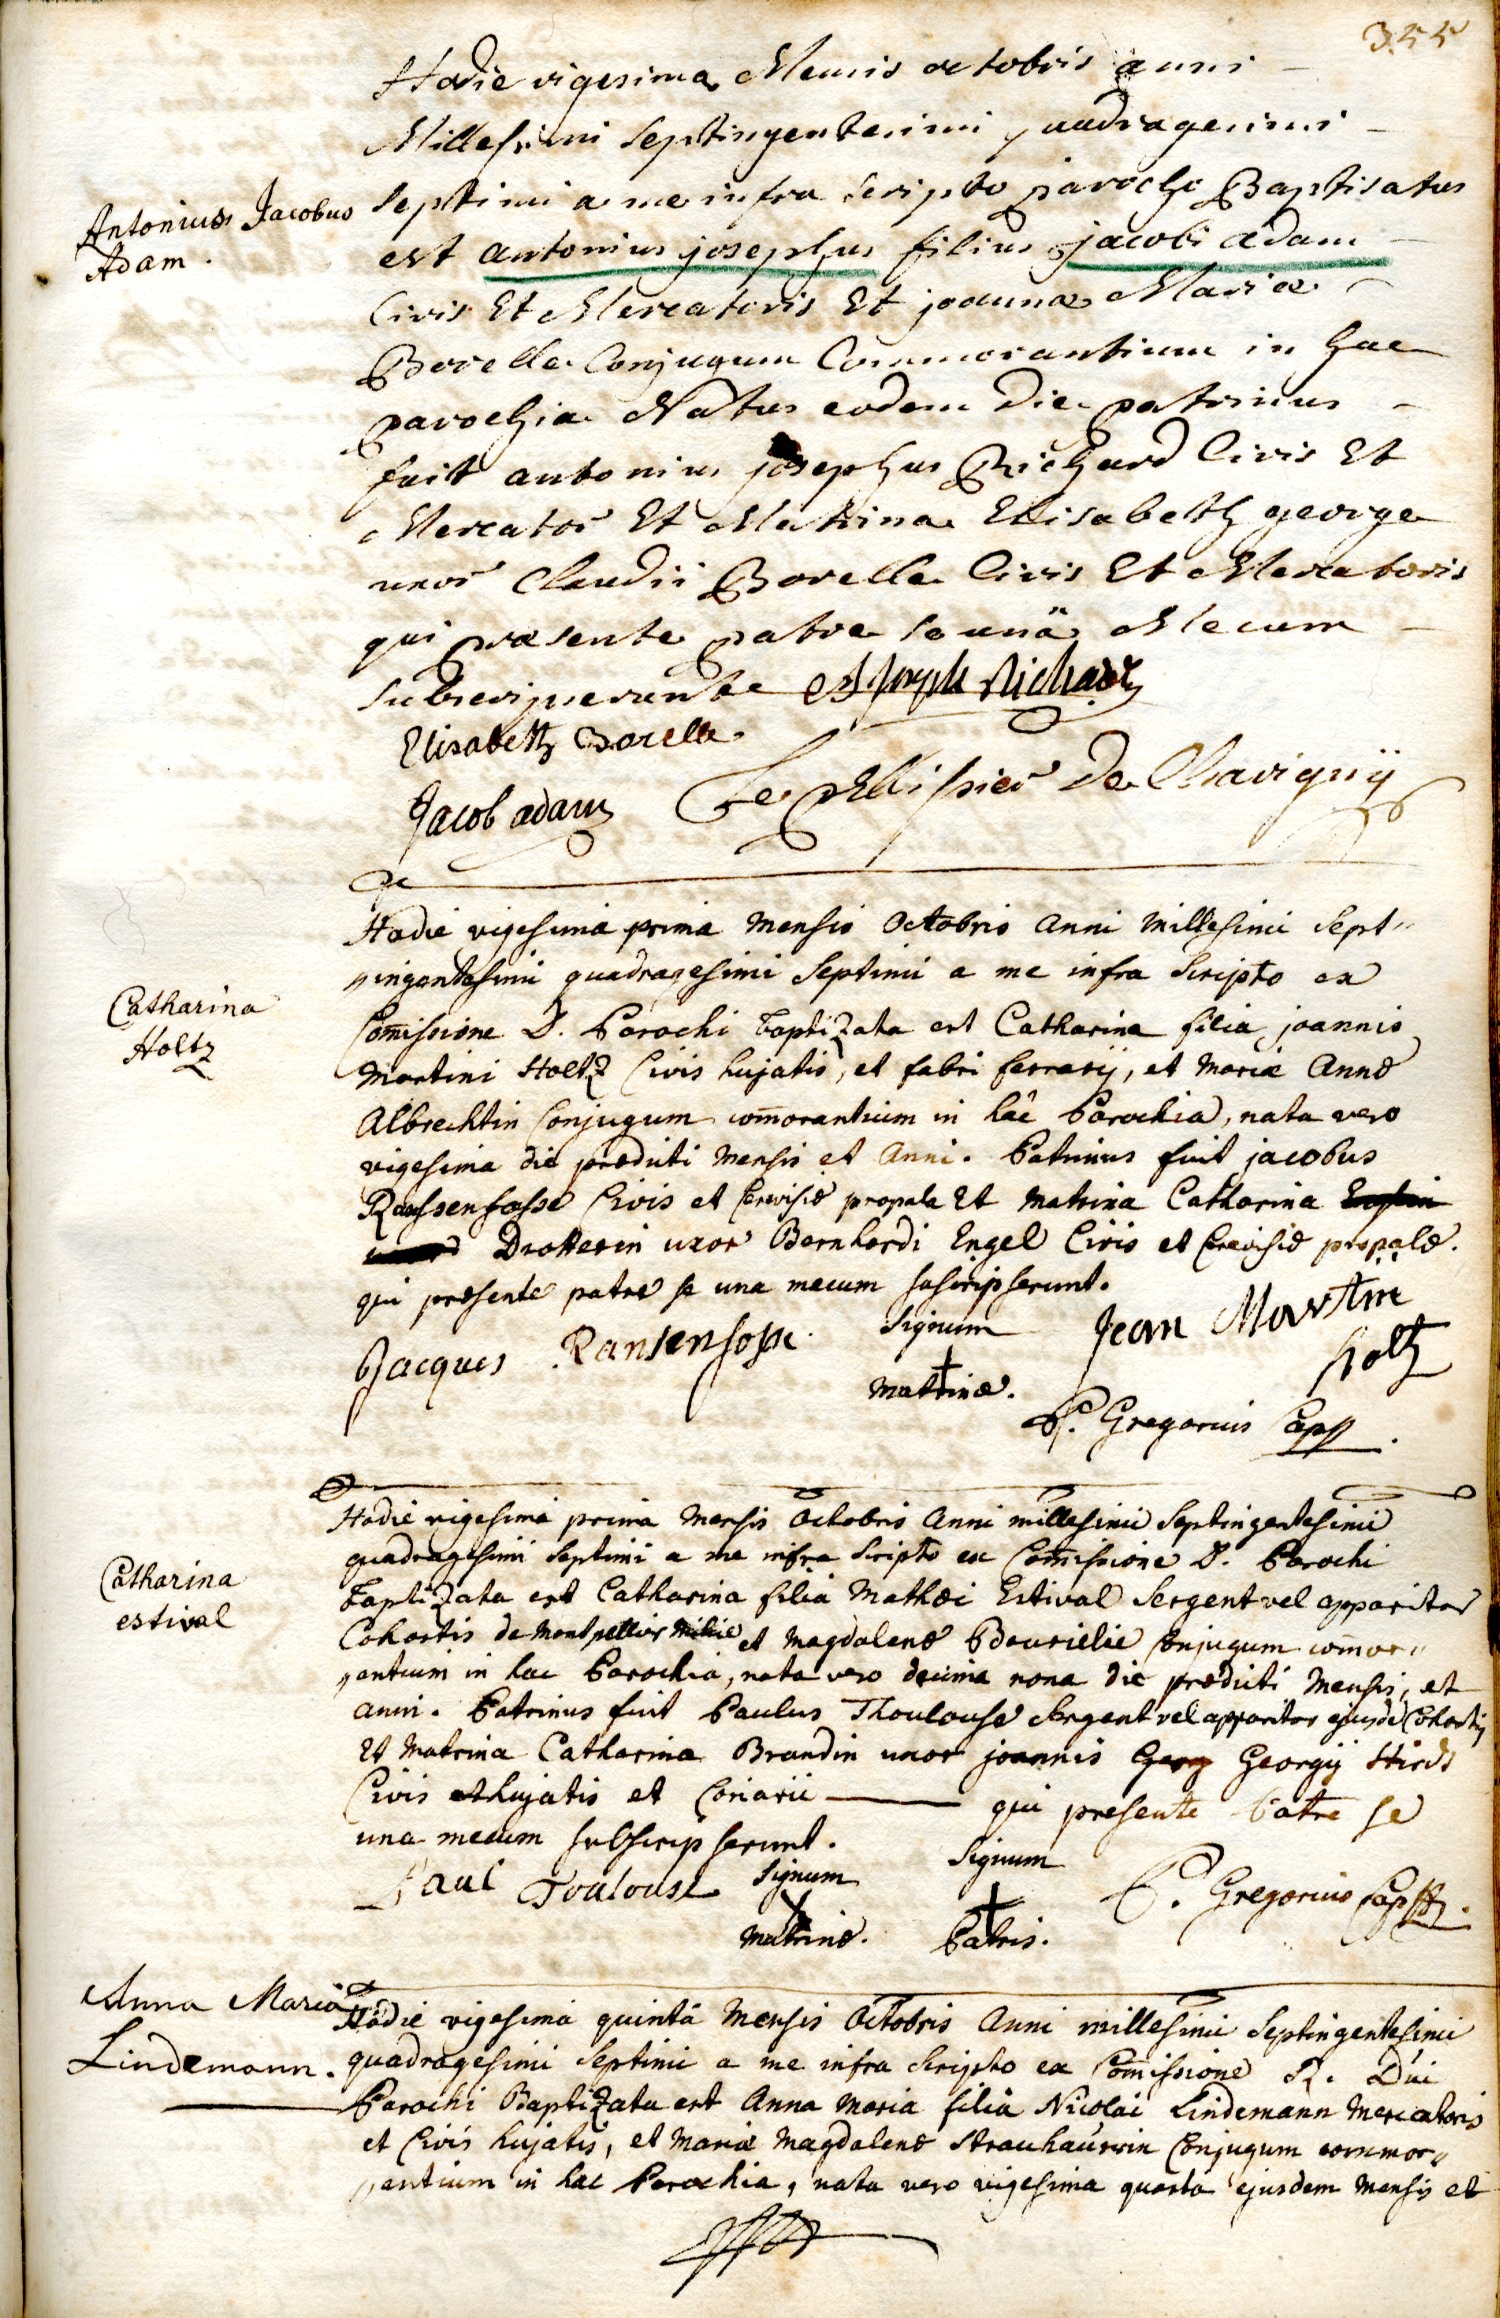 355
Hodie vigesima Mensis octobris anni
Millesimi septingentesimi quadragesimi
Antonius Jacobus
Adam.
septimi a me infra scripto parocho Baptisatus
est antonius josephus filius jacobi adam
Civis Et Mercatoris Et joannæ Mariæ
Borelle Conjugum Commorantium in hac
parochia Natus eodem Die patrinus
fuit antonius josephus Richard Civis Et
Mercator Et Matrina Elisabeth george
uxor Claudii Borelle Civis Et Mercatoris
qui præsente patre se unâ Mecum
subscripserunt
Joseph Richard
Elisabeth Borelle
Jacob adam Le pellissier De Chavigny
Hodie vigesima prima Mensis Octobris Anni Millesimi Sept„
„ingentesimi quadragesimi Septimi a me infra Scripto ex
Catharina
Holtz
Com̄issione D. Parochi baptizata est Catharina filia joannis
Martini Holtz Civis hujatis, et fabri ferrarij, et Mariæ Annæ
Albrechtin Conjugum com̄orantium in hâc Parochia, nata vero
vigesima die prædicti Mensis et Anni. Patrinus fuit jacobus
Raussenfosse Civis et Cerevisiæ propola Et Matrina Catharina
Drotterin uxor Bernhardi Engel Civis et Cerevisiæ propolæ.
qui præsente patre se una mecum subscripserunt.
Jacques Ransenfosse Signum Jean Martin
Matrinæ. Holtz
P. Gregorius Capp.
Hodie vigesima prima Mensis Octobris Anni millesimi Septingentesimi
quadragesimi Septimi a me infra Scripto ex Com̄issione D. Parochi
Catharina
estival
baptizata est Catharina filia Mathæi Estival Sergent vel apparitor
Cohortis de Montpellier Milice et Magdalenæ Bourielie Conjugum com̄or„
„antium in hac Parochia, nata vero decima nona die prædicti Mensis, et
anni. Patrinus fuit Paulus Thoulouse Sergent vel apparitor ejusdē Cohortis
Et Matrina Catharina Brandin uxor joannis Georg Georgij Hirds
Civis et hujatis et Coriarii qui præsente Patre se
una mecum subscripserunt.
Paul Toulouse Signum Signum P. Gregorius Capp.
Matrinæ. Patris.
Anna Maria
Lindemann.
Hodie vigesima quinta Mensis Octobris Anni millesimi Septingentesimi
quadragesimi Septimi a me infra Scripto ex Com̄issione R. Dn̄i
Parochi Baptizata est Anna Maria filia Nicolai Lindemann Mercatoris
et Civis hujatis, et Mariæ Magdalenæ Strauhaurin Conjugum commor„
„antium in hac Parochia, nata vero vigesima quarta ejusdem Mensis et